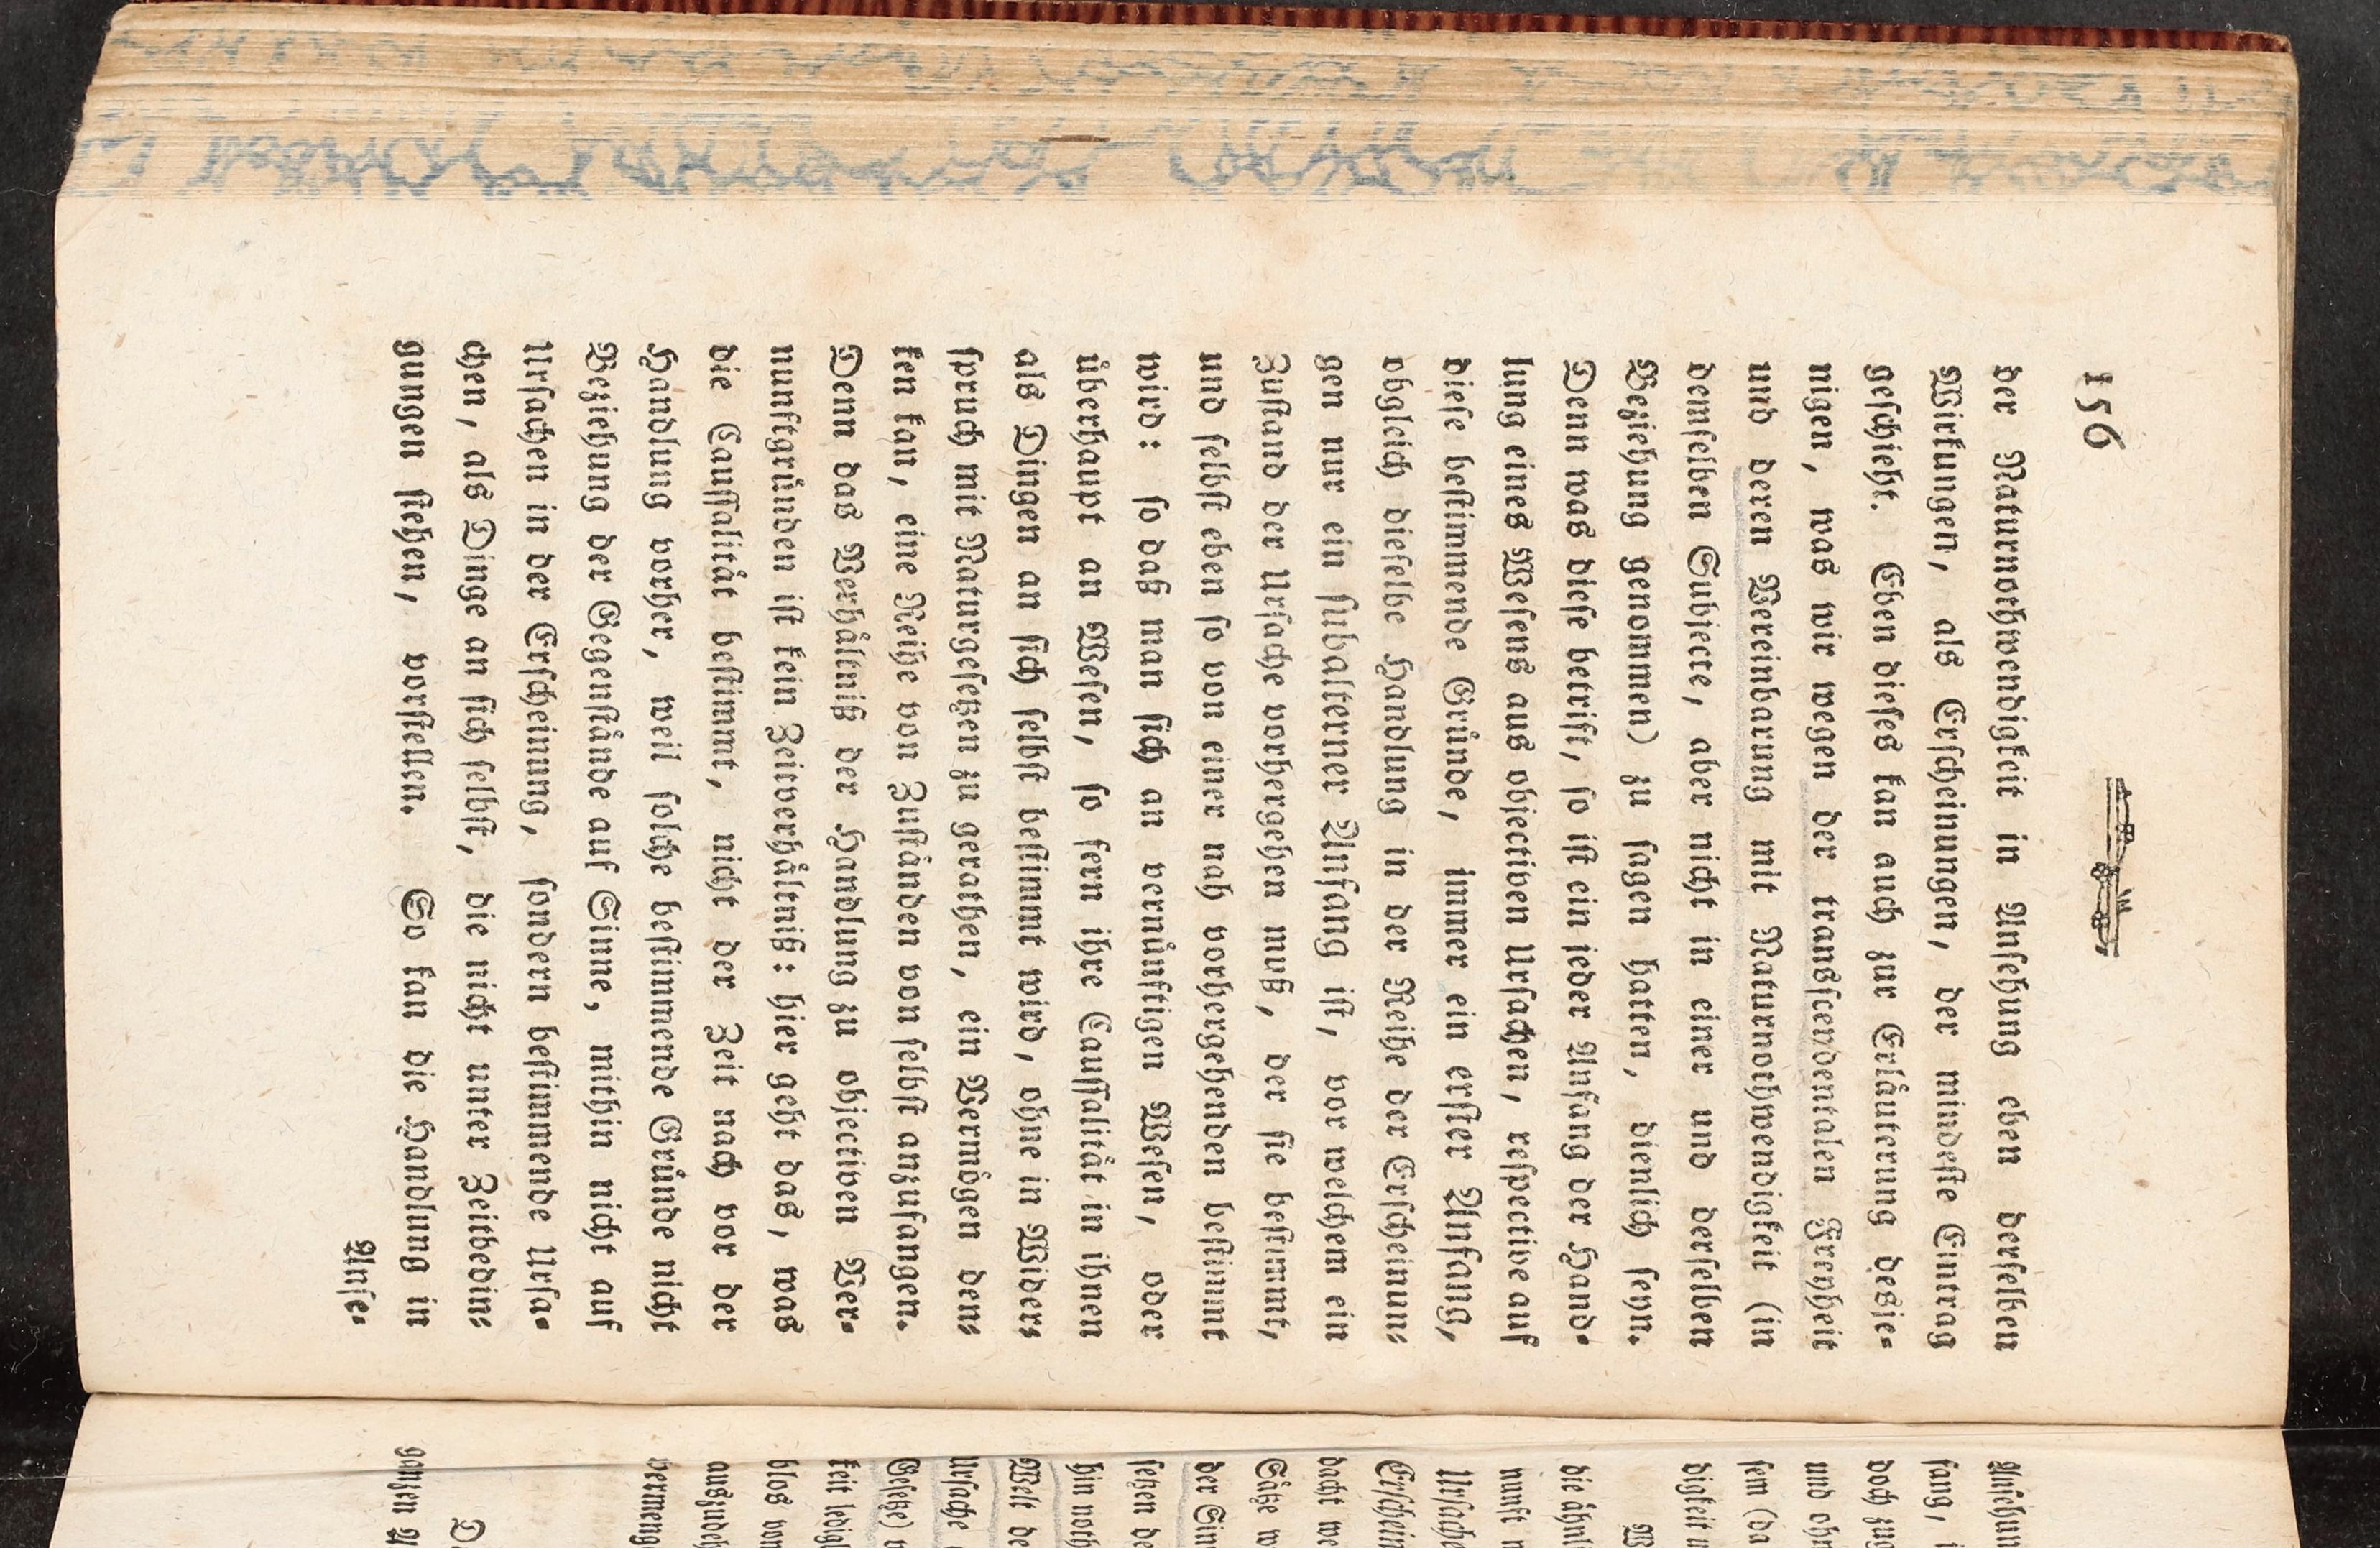 156
der Naturnothwendigkeit in Ansehung eben derselben
Wirkungen, als Erscheinungen, der mindeste Eintrag
geschieht. Eben dieses kan auch zur Erläuterung desie-
nigen, was wir wegen der transscendentalen Freyheit
und deren Vereinbarung mit Naturnothwendigkeit (in
demselben Subjecte, aber nicht in einer und derselben
Beziehung genommen) zu sagen hatten, dienlich seyn.
Denn was diese betrift, so ist ein ieder Anfang der Hand-
lung eines Wesens aus objectiven Ursachen, respective auf
diese bestimmende Gründe, immer ein erster Anfang,
obgleich dieselbe Handlung in der Reihe der Erscheinun-
gen nur ein subalterner Anfang ist, vor welchem ein
Zustand der Ursache vorhergehen muß, der sie bestimmt,
und selbst eben so von einer nah vorhergehenden bestimmt
wird: so daß man sich an vernünftigen Wesen, oder
überhaupt an Wesen, so fern ihre Caussalität in ihnen
als Dingen an sich selbst bestimmt wird, ohne in Wider-
spruch mit Naturgesetzen zu gerathen, ein Vermögen den-
ken kan, eine Reihe von Zuständen von selbst anzufangen.
Denn das Verhältniß der Handlung zu objectiven Ver-
nunftgründen ist kein Zeitverhältniß: hier geht das, was
die Caussalität bestimmt, nicht der Zeit nach vor der
Handlung vorher, weil solche bestimmende Gründe nicht
Beziehung der Gegenstände auf Sinne, mithin nicht auf
Ursachen in der Erscheinung, sondern bestimmende Ursa-
chen, als Dinge an sich selbst, die nicht unter Zeitbedin-
gungen stehen, vorstellen. So kan die Handlung in
Anse-
Ansehun
fang, i
doch zug
und ohn
sem (da
digkeit u
W
die ähnl
nunft n
Ursache
Erschein
dacht we
Sätze w
der Sin
setzen de
hin noth
Welt de
Ursache
Gesetze) u
keit ledigl
blos von
auszudeh
vermeng
D
ganzen V